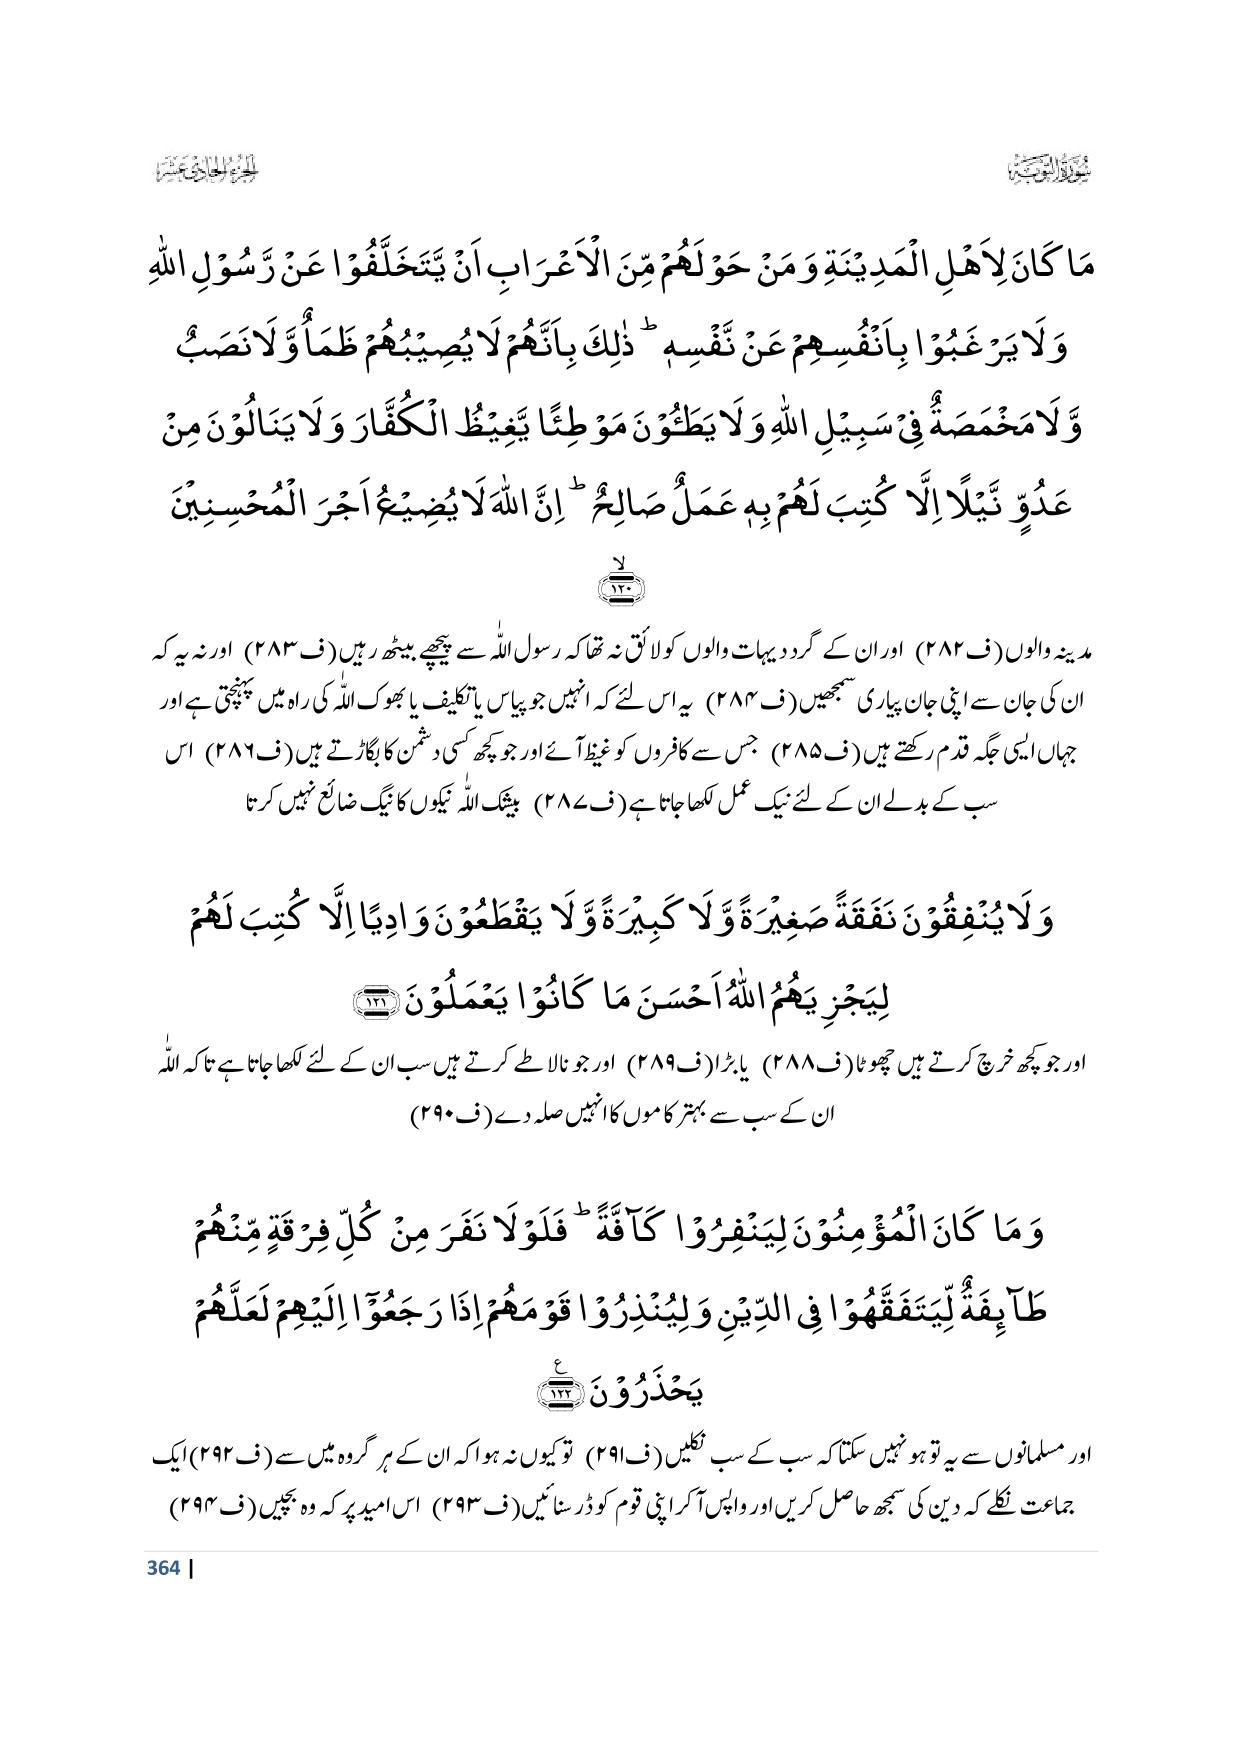 سُوْرَةُ التَّوْبَةِ
الجزء الحادی عشر
مَا كَانَ لِاَهْلِ الْمَدِیْنَةِ وَ مَنْ حَوْلَهُمْ مِّنَ الْاَعْرَابِ اَنْ یَّتَخَلَّفُوْا عَنْ رَّسُوْلِ اللّٰهِ
وَ لَا یَرْغَبُوْا بِاَنْفُسِهِمْ عَنْ نَّفْسِهٖ ؕ ذٰلِكَ بِاَنَّهُمْ لَا یُصِیْبُهُمْ ظَمَاٌ وَّ لَا نَصَبٌ
وَّ لَا مَخْمَصَةٌ فِیْ سَبِیْلِ اللّٰهِ وَ لَا یَطَـُٔوْنَ مَوْطِئًا یَّغِیْظُ الْكُفَّارَ وَ لَا یَنَالُوْنَ مِنْ
عَدُوٍّ نَّیْلًا اِلَّا كُتِبَ لَهُمْ بِهٖ عَمَلٌ صَالِحٌ ؕ اِنَّ اللّٰهَ لَا یُضِیْعُ اَجْرَ الْمُحْسِنِیْنَ
ۙ﴿۱۲۰﴾
مدینہ والوں (ف۲۸۲) اور ان کے گرد دیہات والوں کو لائق نہ تھا کہ رسول اللّٰہ سے پیچھے بیٹھ رہیں (ف۲۸۳) اور نہ یہ کہ
ان کی جان سے اپنی جان پیاری سمجھیں (ف۲۸۴) یہ اس لئے کہ انہیں جو پیاس یا تکلیف یا بھوک اللّٰہ کی راہ میں پہنچتی ہے اور
جہاں ایسی جگہ قدم رکھتے ہیں (ف۲۸۵) جس سے کافروں کو غیظ آئے اور جو کچھ کسی دشمن کا بگاڑتے ہیں (ف۲۸۶) اس
سب کے بدلے ان کے لئے نیک عمل لکھا جاتا ہے (ف۲۸۷) بیشک اللّٰہ نیکوں کا نیگ ضائع نہیں کرتا
وَ لَا یُنْفِقُوْنَ نَفَقَةً صَغِیْرَةً وَّ لَا كَبِیْرَةً وَّ لَا یَقْطَعُوْنَ وَادِیًا اِلَّا كُتِبَ لَهُمْ
لِیَجْزِیَهُمُ اللّٰهُ اَحْسَنَ مَا كَانُوْا یَعْمَلُوْنَ ﴿۱۲۱﴾
اور جو کچھ خرچ کرتے ہیں چھوٹا (ف۲۸۸) یا بڑا (ف۲۸۹) اور جو نالا طے کرتے ہیں سب ان کے لئے لکھا جاتا ہے تاکہ اللّٰہ
ان کے سب سے بہتر کاموں کا انہیں صلہ دے (ف۲۹۰)
وَ مَا كَانَ الْمُؤْمِنُوْنَ لِیَنْفِرُوْا كَآفَّةً ؕ فَلَوْ لَا نَفَرَ مِنْ كُلِّ فِرْقَةٍ مِّنْهُمْ
طَآىٕفَةٌ لِّیَتَفَقَّهُوْا فِی الدِّیْنِ وَ لِیُنْذِرُوْا قَوْمَهُمْ اِذَا رَجَعُوْۤا اِلَیْهِمْ لَعَلَّهُمْ
یَحْذَرُوْنَ ﴿۱۲۲﴾ ع
اور مسلمانوں سے یہ تو ہو نہیں سکتا کہ سب کے سب نکلیں (ف۲۹۱) تو کیوں نہ ہوا کہ ان کے ہر گروہ میں سے (ف۲۹۲) ایک
جماعت نکلے کہ دین کی سمجھ حاصل کریں اور واپس آکر اپنی قوم کو ڈر سنائیں (ف۲۹۳) اس امید پر کہ وہ بچیں (ف۲۹۴)
364 |